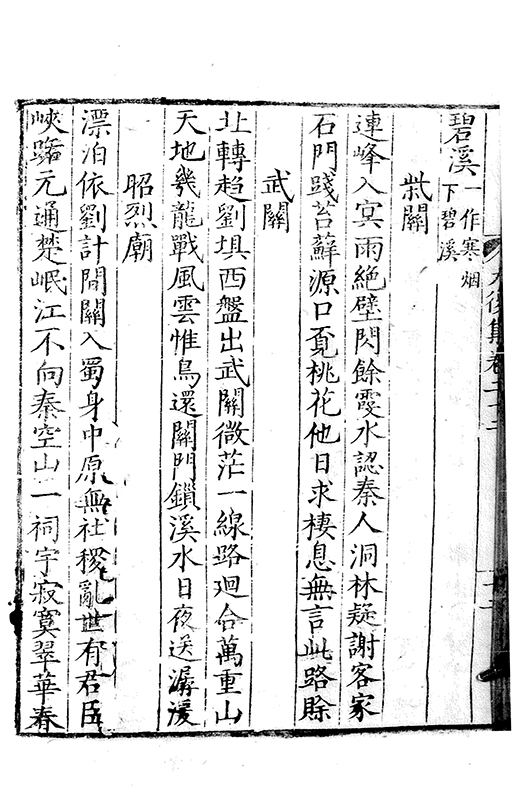 碧溪一作寒烟下碧溪
柴關
連峰入冥雨絶壁閃餘霞水認秦人洞林疑謝客家
石門踐苔蘚源口覓桃花他日求棲息無言此路賒
武關
北轉趋劉埧西盤出武關微茫一線路廻合萬重山
天地幾龍戰風雲惟鳥還關門鎖溪水日夜送潺湲
昭烈廟
漂泊依劉計間關入蜀身中原無社稷亂世有君臣
峽路元通楚岷江不向秦空山一祠宇寂寞翠華春